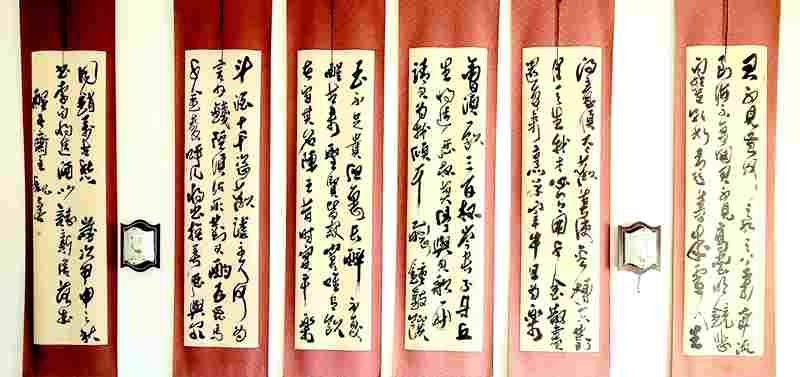 君不見黃河之水天上來奔流
到海不復回君不見高堂明鏡悲
白髮朝如青絲暮成雪人生
得意須盡歡莫使金樽空對
月天生我才必有用千金散盡
還復來烹羊宰牛且為樂
會須一飲三百杯岑夫子丹丘
生將進酒杯莫停與君歌一曲
請君為我傾耳聽鐘鼓饌
玉不足貴但願長醉不願
醒古來聖賢皆寂寞惟有飲
者留其名陳王昔時宴平樂
斗酒十千恣歡謔主人何為
言少錢徑須沽取對君酌五花馬
千金裘呼兒將出換美酒與爾
同銷萬古愁 歲次甲申之秋
書李白將進酒以
齋主